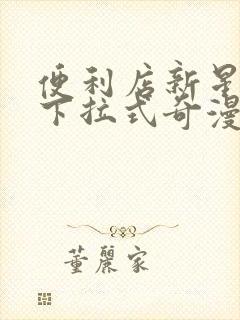 便利店新星
下拉式奇漫
董麗家